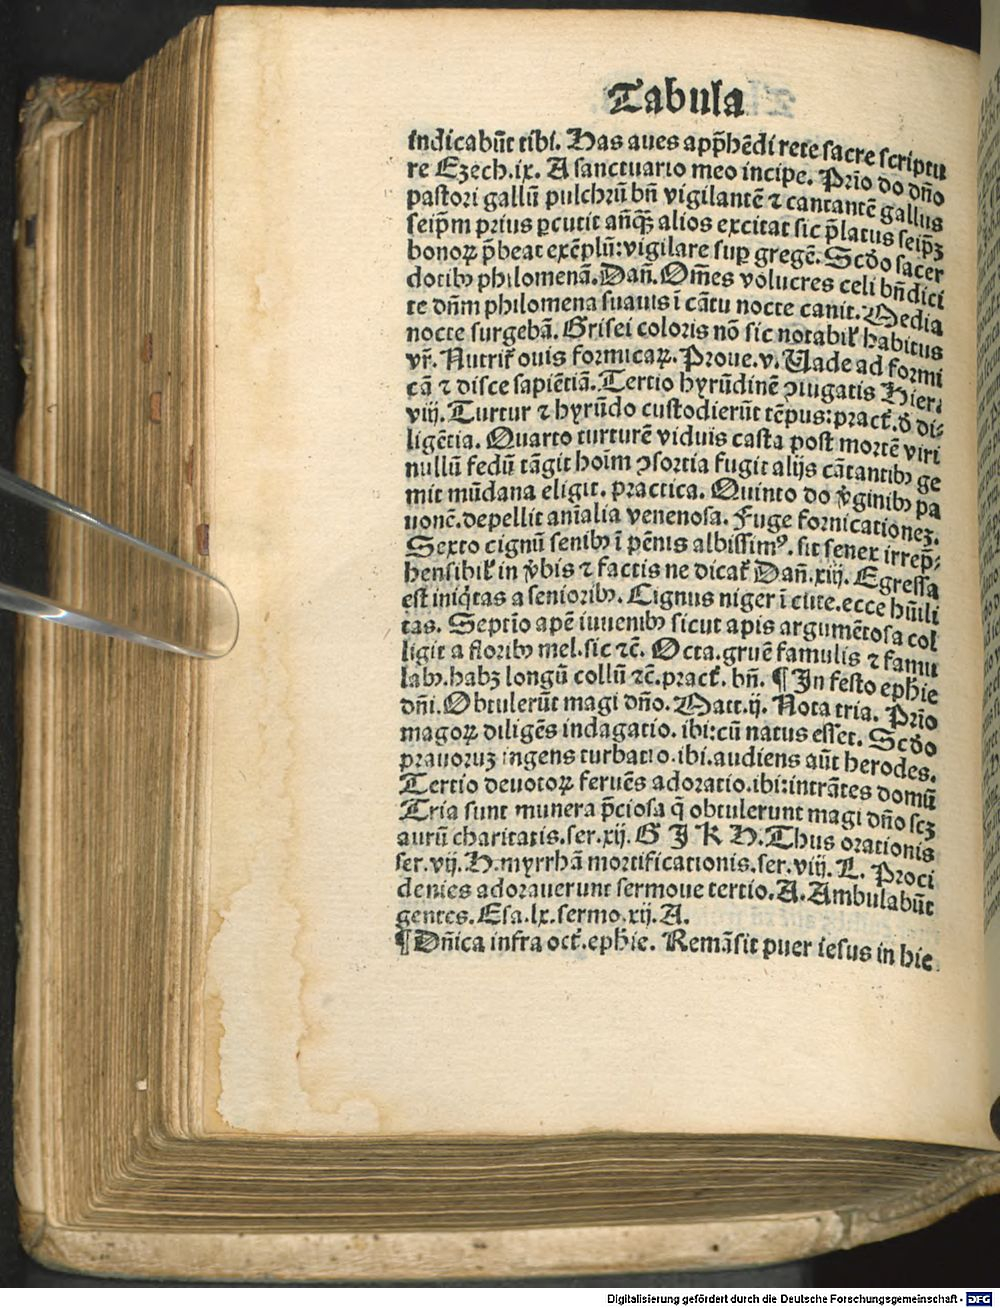 Tabula
indicabūt tibi. Has aues appħēdi rete sacre scriptu
re Ezech.ix. A sanctuario meo incipe. Prīo do dño
pastori gallū pulchrū bñ vigilantē ⁊ cantantē gallus
seip̄m prius ꝑcutit añqꝫ alios excitat sic p̄latus seip̄ꝫ
bonoꝝ p̄beat exēplū:vigilare suꝑ gregē. Scd̄o sacer
dotibꝰ philomenā. Dañ. Om̄es volucres celi bñdici
te dñm philomena suauis ī cātu nocte canit. Media
nocte surgebā. Grisei coloris nō sic notabil̓ habitus
vr̄. Nutrit̓ ouis formicaꝝ. Proue.v. Uade ad formi
cā ⁊ disce sapiētiā. Tertio hyrūdinē ꝯiugatis Hier.
viij. Turtur ⁊ hyrūdo custodierūt tēpus:pract̓. d̓ di⸗
ligētia. Quarto turturē viduis casta post mortē viri
nullū fedū tāgit hoīm ꝯsortia fugit alijs cātantibꝰ ge
mit mūdana eligit. practica. Quinto do v̓ginibꝰ pa
uonē. depellit aīalia venenosa. Fuge fornicationeꝫ.
Sexto cignū senibꝰ ī pēnis albissimꝰ. sit senex irrep̄⸗
hensibil̓ in v̓bis ⁊ factis ne dicat̓ Dañ.xiij. Egressa
est iniq̇tas a senioribꝰ. Cignus niger ī cute. ecce hūili
tas. Septīo apē iuuenibꝰ sicut apis argumētosa col
ligit a floribꝰ mel. sic ⁊c̄. Octa. gruē famulis ⁊ famu
labꝰ. habꝫ longū collū ⁊c̄. pract̓. bñ. ¶ In festo ephie
dñi. Obtulerūt magi dño. Matt.ij. Nota tria. Prīo
magoꝝ diligēs indagatio. ibi:cū natus esset. Scd̄o
prauoruꝫ ingens turbatio. ibi. audiens aūt herodes.
Tertio deuotoꝝ feruēs adoratio. ibi:intrātes domū
Tria sunt munera p̄ciosa q̄ obtulerunt magi dño scꝫ
aurū charitatis. ser.xij. G I K H. Thus orationis
ser.vij. H. myrrhā mortificationis. ser.viij. L. Proci
dentes adorauerunt sermoue tertio. A. Ambulabūt
gentes. Esa.lx. sermo.xij. A.
¶ Dñica infra oct̓. ephie. Remāsit puer iesus in hie
Digitalisierung gefördert durch die Deutsche Forschungsgemeinschaft - DFG